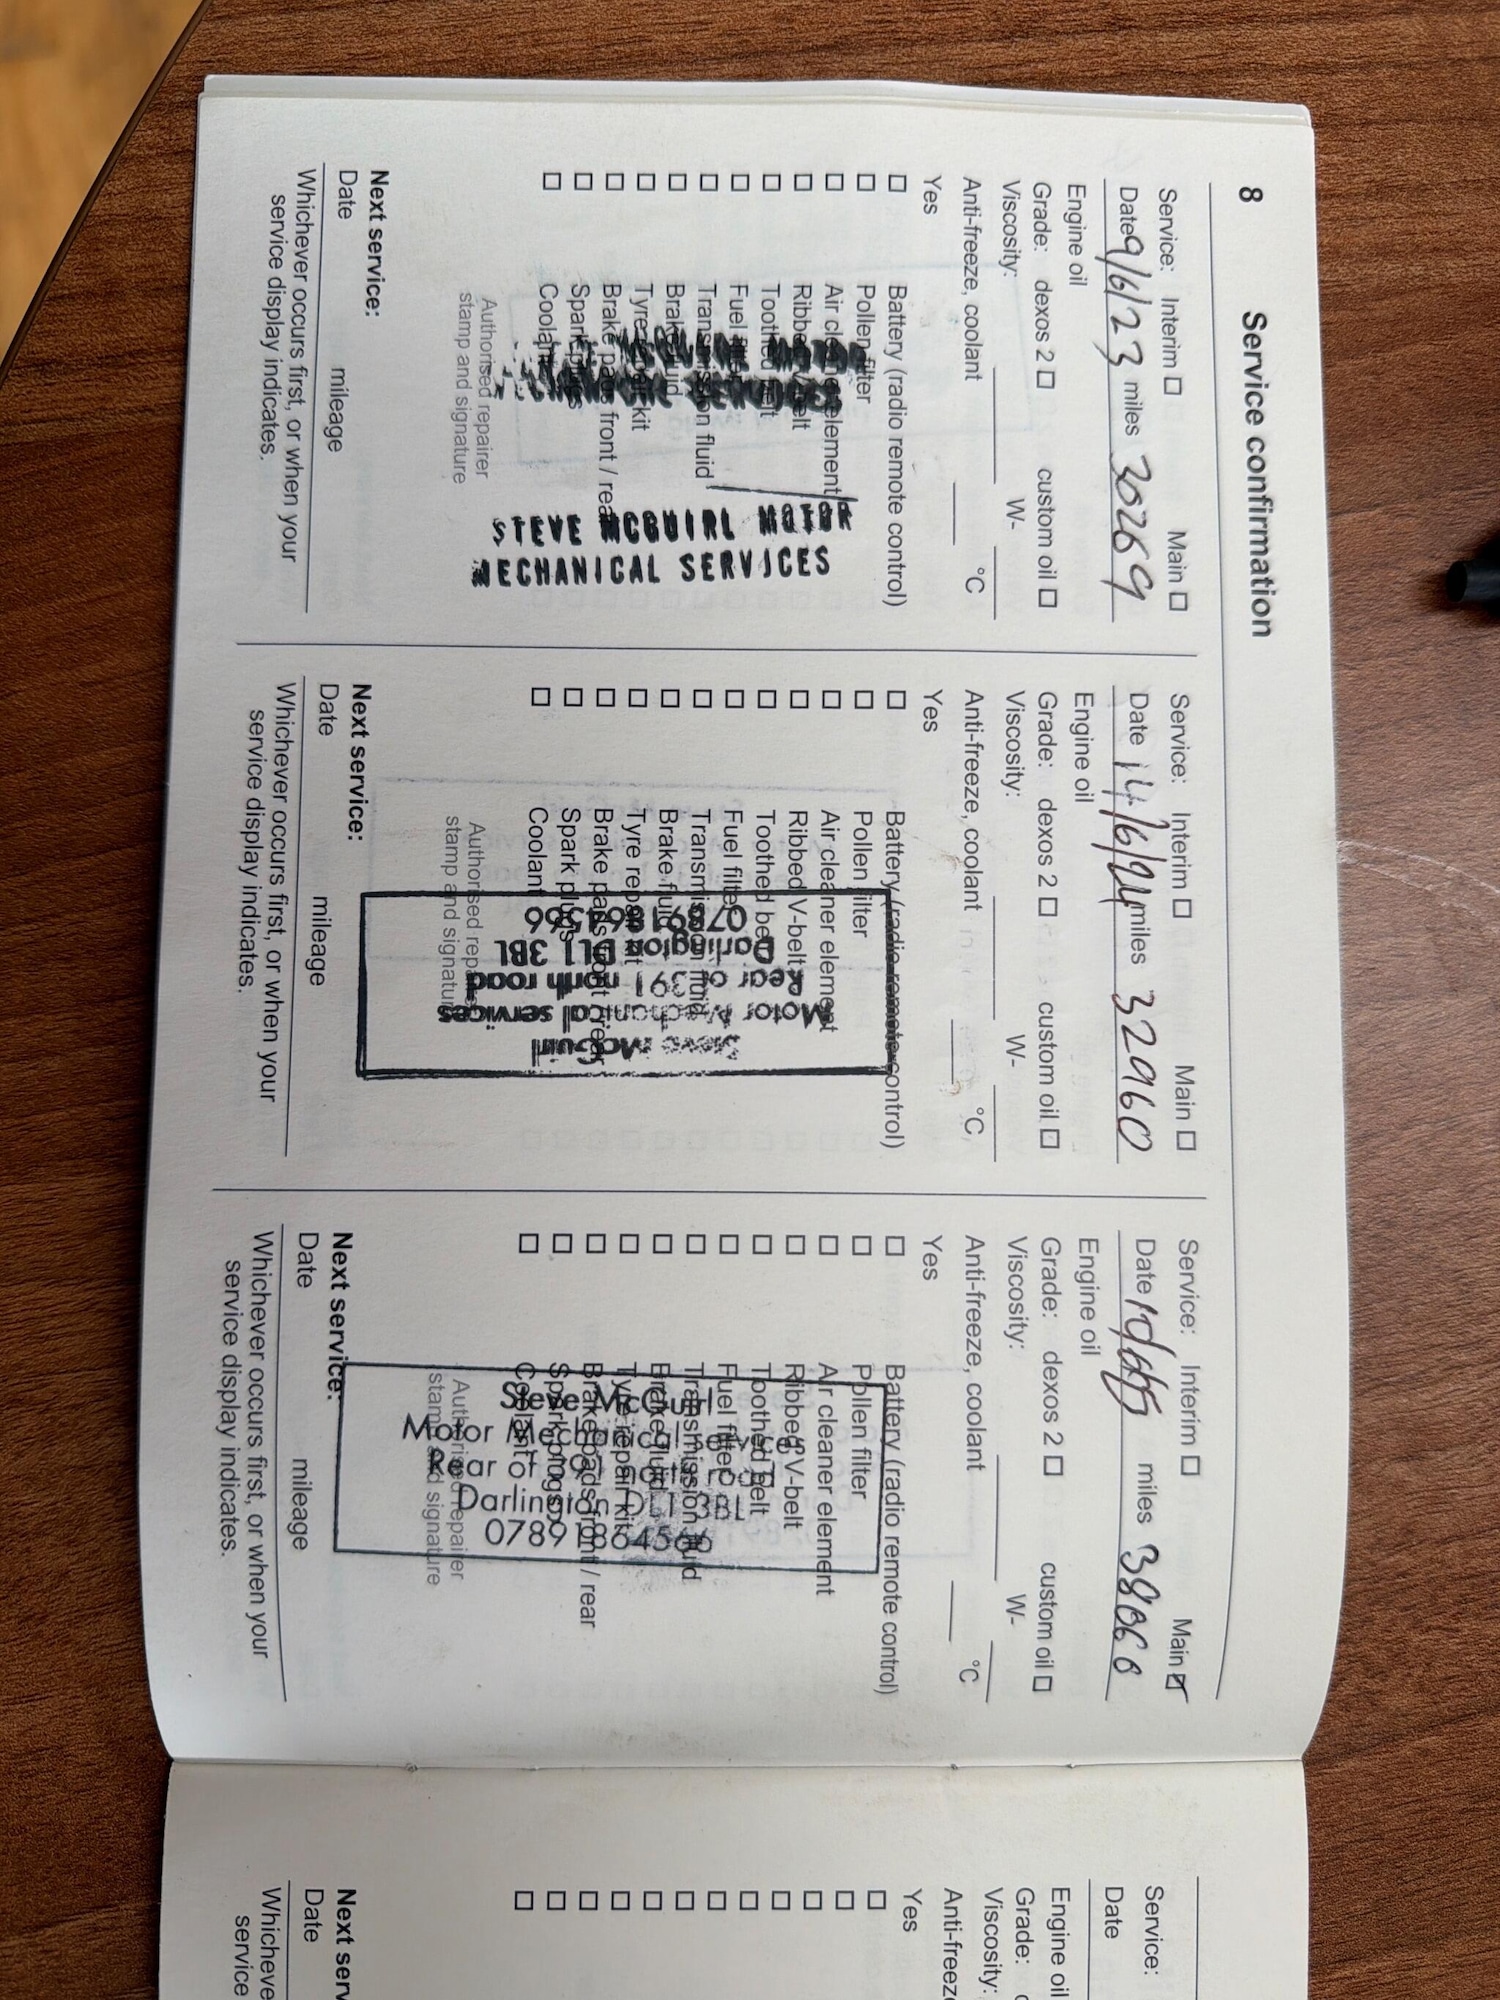 8 Service confirmation
Service: Interim ☐ Main ☐
Date 9/6/23 miles 30269
Engine oil
Grade: dexos 2 ☐ custom oil ☐
Viscosity: W-
Anti-freeze, coolant °C
Yes
☐ Battery (radio remote control)
☐ Pollen filter
☐ Air cleaner element
☐ Ribbed V-belt
☐ Toothed belt
☐ Fuel filter
☐ Transmission fluid
☐ Brake fluid
☐ Tyre repair kit
☐ Brake pads front / rear
☐ Spark plugs
☐ Coolant
STEVE MCGUIRL MOTOR
MECHANICAL SERVICES
Authorised repairer
stamp and signature
Next service:
Date mileage
Whichever occurs first, or when your
service display indicates.
Service: Interim ☐ Main ☐
Date 14/6/24 miles 32960
Engine oil
Grade: dexos 2 ☐ custom oil ☐
Viscosity: W-
Anti-freeze, coolant °C
Yes
☐ Battery (radio remote control)
☐ Pollen filter
☐ Air cleaner element
☐ Ribbed V-belt
☐ Toothed belt
☐ Fuel filter
☐ Transmission fluid
☐ Brake fluid
☐ Tyre repair kit
☐ Brake pads front / rear
☐ Spark plugs
☐ Coolant
McGuirl
Motor Mechanical services
Rear of 391 north road
Darlington DL1 3BL
07891864566
Authorised repairer
stamp and signature
Next service:
Date mileage
Whichever occurs first, or when your
service display indicates.
Service: Interim ☐ Main ☑
Date miles 38060
Engine oil
Grade: dexos 2 ☐ custom oil ☐
Viscosity: W-
Anti-freeze, coolant °C
Yes
☐ Battery (radio remote control)
☐ Pollen filter
☐ Air cleaner element
☐ Ribbed V-belt
☐ Toothed belt
☐ Fuel filter
☐ Transmission fluid
☐ Brake fluid
☐ Tyre repair kit
☐ Brake pads front / rear
☐ Spark plugs
☐ Coolant
Steve McGuirl
Motor Mechanical services
Rear of 391 north road
Darlington DL1 3BL
07891864566
Authorised repairer
stamp and signature
Next service:
Date mileage
Whichever occurs first, or when your
service display indicates.
Service:
Date
Engine oil
Grade:
Viscosity:
Anti-freez
Yes
☐
☐
☐
☐
☐
☐
☐
☐
☐
☐
☐
☐
Next serv
Date
Whicheve
service